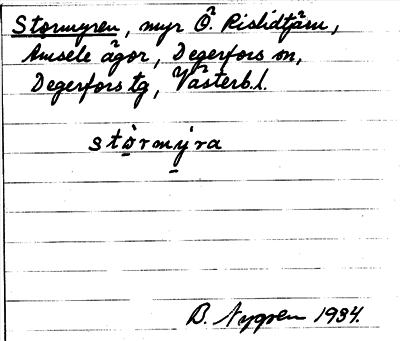 Stormyren, myr Ö. Rislidtjärn,
Amsele ägor, Degerfors sn,
Degerfors tg, Västerb.l.
stòrmýra
B. Nygren 1934.